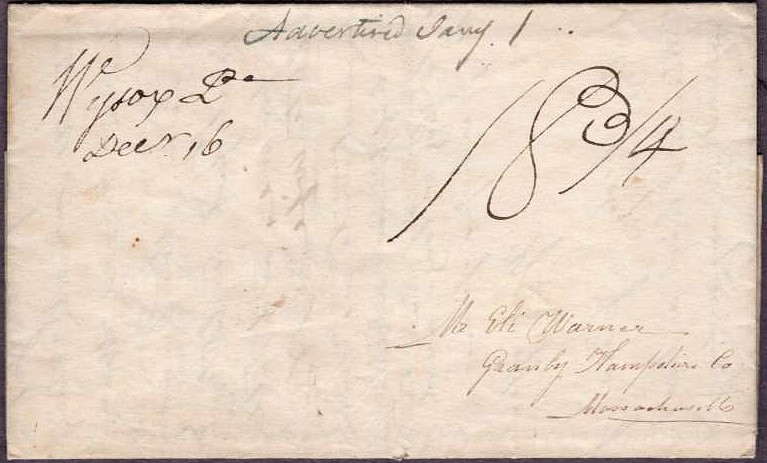 Advertised Jany. 1
Wysox Pa
Decr 16
18 3/4
Mr Eli Warner
Granby Hampshire Co
Massachusetts